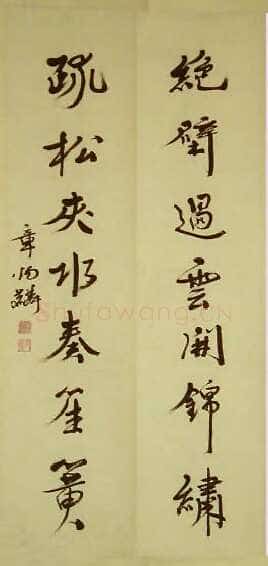 絕壁過雲開錦繡
疏松夾水奏笙簧
章炳麟
Shufawang.CN